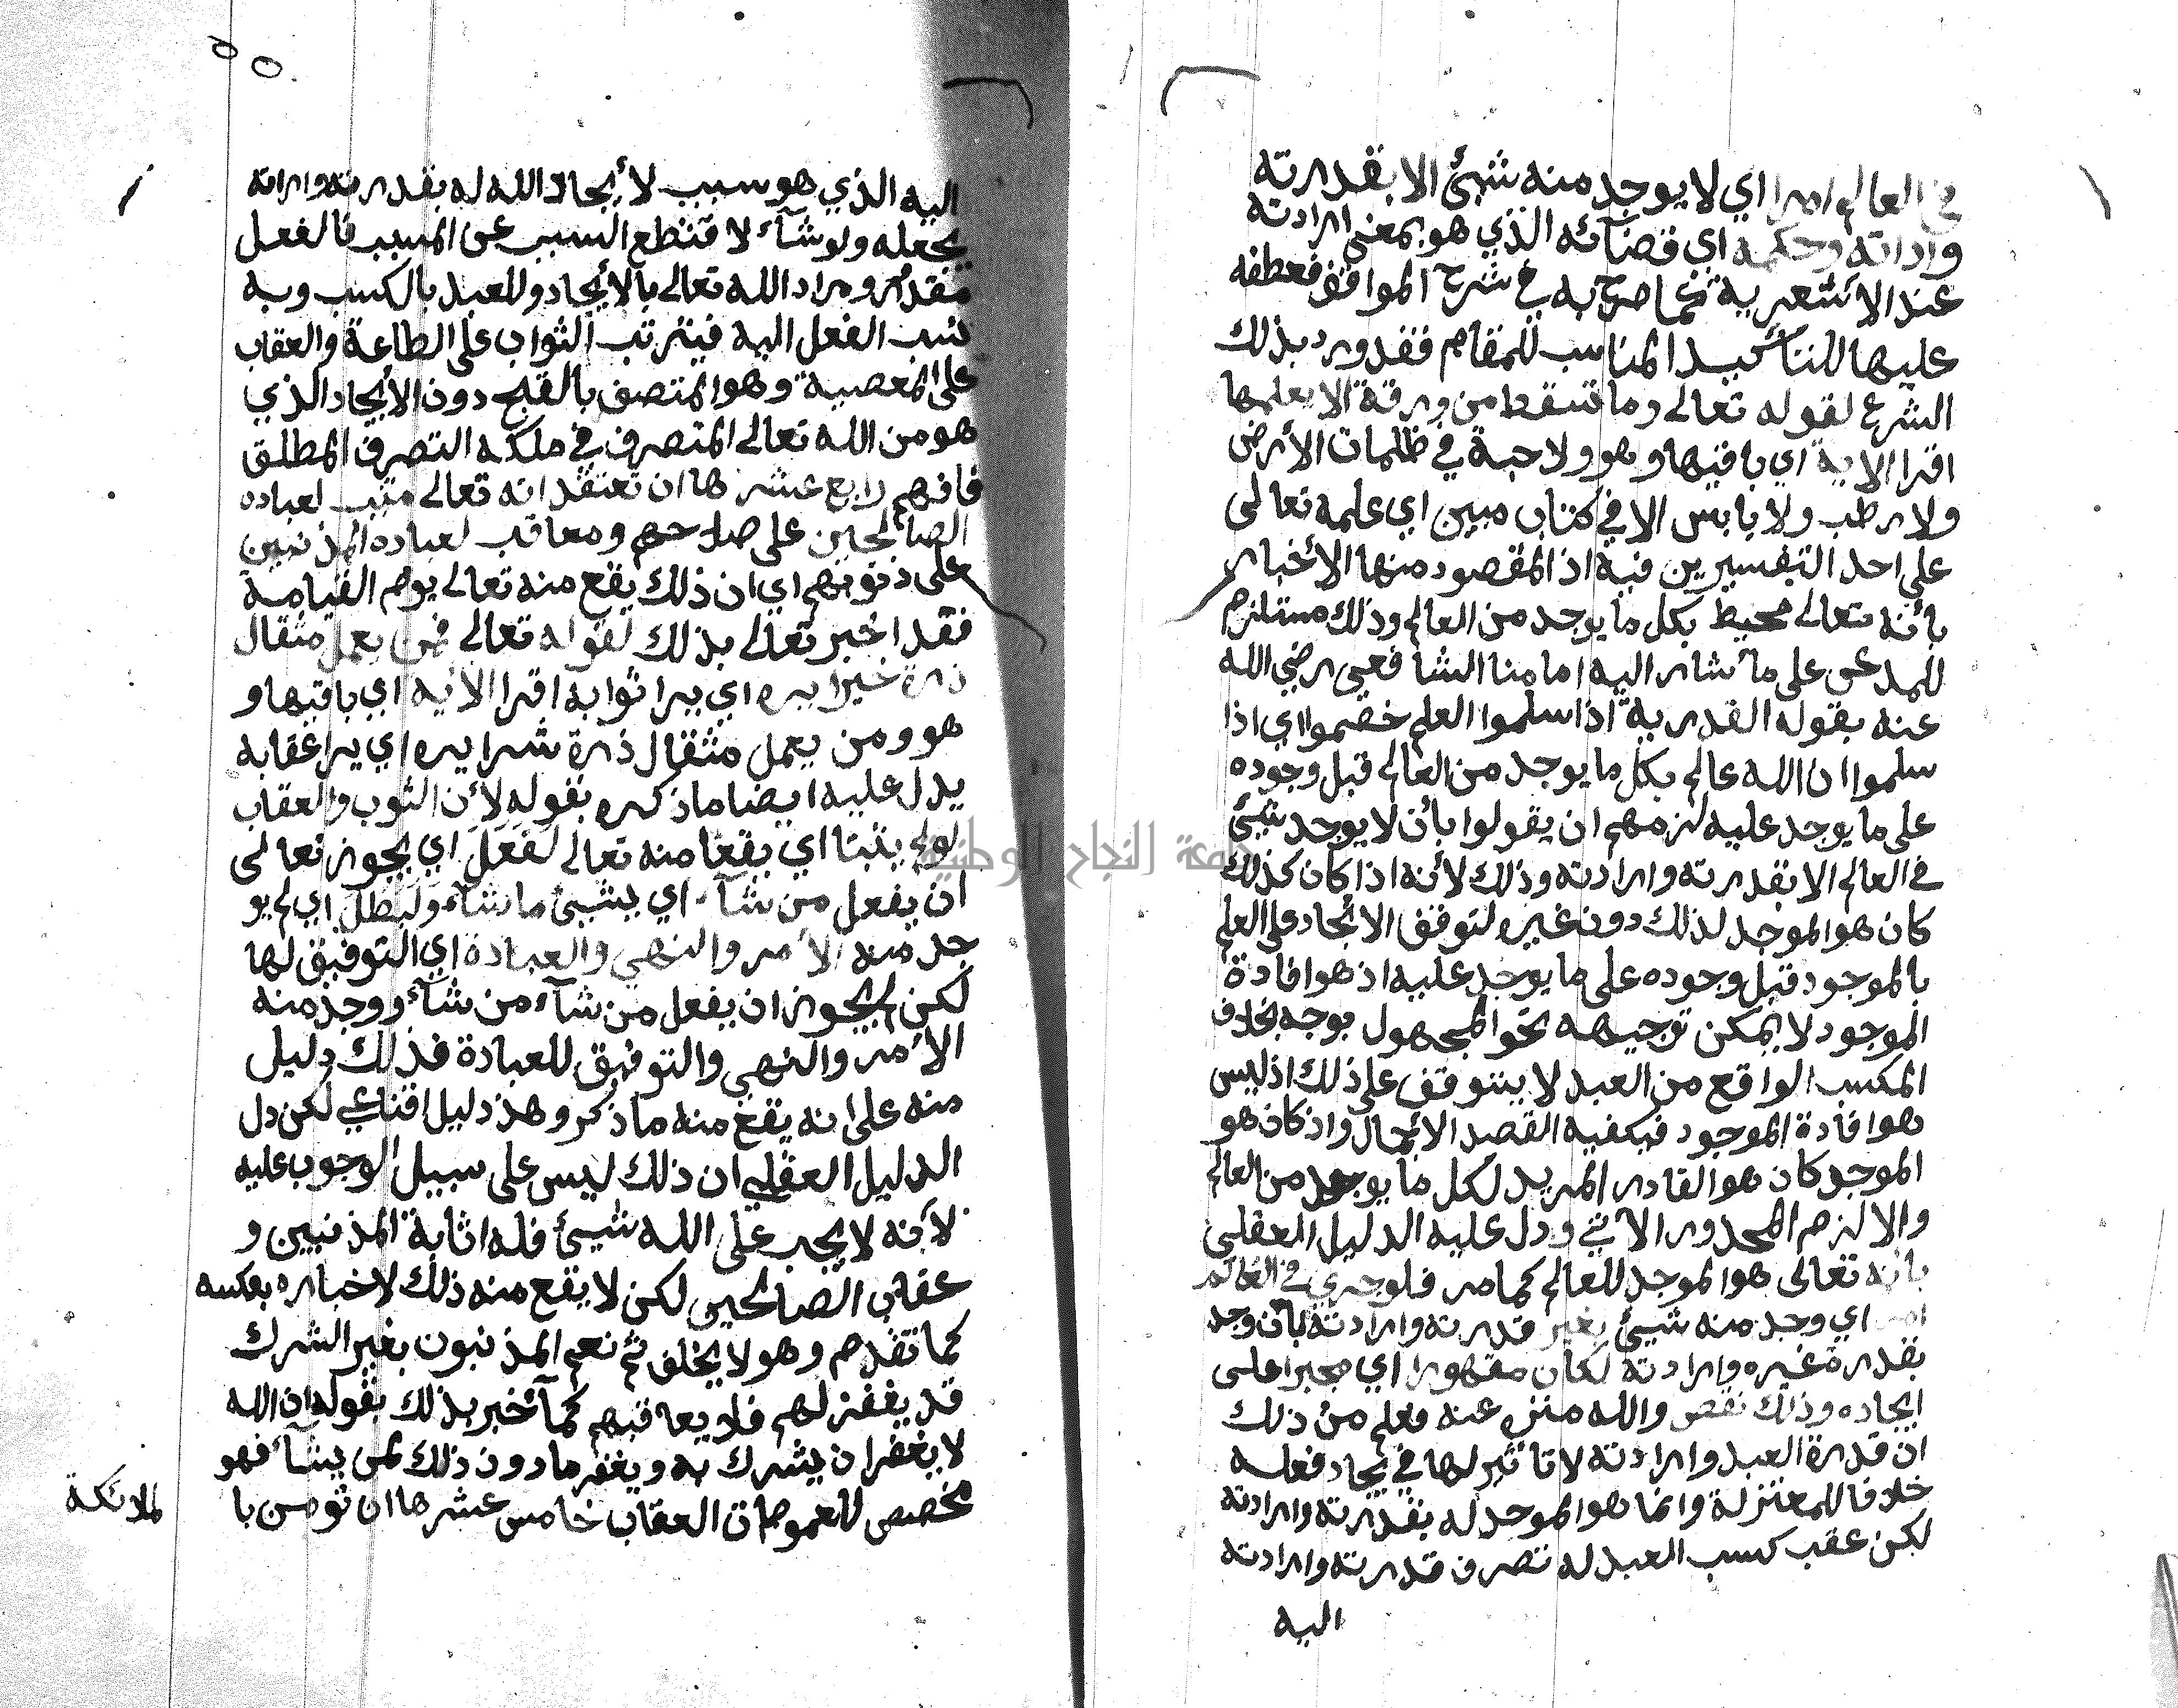 في العالم امرا اي لا يوجد منه شيئ الا بقدرته
وارادته وحكمه اي قضآئه الذي هو بمعنى ارادته
عند الاشعرية كما صرح به في شرح المواقف فعطفه
عليها للتأكيد المناسب للمقام فقد ورد بذلك
الشرع لقوله تعالى وما تسقط من ورقة الا يعلمها
اقرا الاية اي باقيها وهو ولا حبة في ظلمات الأرض
ولا رطب ولا يابس الا في كتاب مبين اي علمه تعالى
على احد التفسيرين فيه اذ المقصود منها الأخبار
بأنه تعالى محيط بكل ما يوجد من العالم وذلك مستلزم
للمدعى على ما أشار اليه امامنا الشافعي رضي الله
عنه بقوله القدرية اذا سلموا العلم خصموا اي اذا
سلموا ان الله عالم بكل ما يوجد من العالم قبل وجوده
على ما يوجد عليه لزمهم ان يقولوا بأن لا يوجد شيئ
في العالم الا بقدرته وارادته وذلك لأنه اذا كان كذلك
كان هو الموجد لذلك دون غيره لتوقف الأيجاد على العلم
بالموجود قبل وجوده على ما يوجد عليه اذ هو افادة
الموجود لا يمكن توجيهه نحو المجهول بوجه بخلاف
المكسب الواقع من العبد لا يتوقف على ذلك اذ ليس
هو افادة الموجود فيكفيه القصد الأجمال واذ كان هو
الموجد كان هو القادر المريد لكل ما يوجد من العالم
والا لزم المحذور الآتي ودل عليه الدليل العقلي
بأنه تعالى هو الموجد للعالم كما مر فلو جرى في العالم
امر اي وجد منه شيئ بغير قدرته وارادته بأن وجد
بقدرة غيره وارادته لكان مقهورا اي مجبرا على
ايجاده وذلك نقص والله منزه عنه فعلم من ذلك
ان قدرة العبد وارادته لا تأثير لها في يجاد فعله
خلافا للمعتزلة وانما هو الموجد له بقدرته وارادته
لكن عقب كسب العبد له تصرف قدرته وارادته
اليه
اليه الذي هو سبب لأيجاد الله له بقدرته وارادته
بجعله ولو شآء لا قتطع السبب عن المسبب فالفعل
مقدور ومراد الله تعالى بالأيجاد وللعبد بالكسب وبه
نسب الفعل اليه فيترتب الثواب على الطاعة والعقاب
على المعصية وهو المتصف بالقبح دون الأيجاد الذي
هو من الله تعالى المتصرف في ملكه التصرف المطلق
فافهم رابع عشرها ان تعتقد انه تعالى مثيب لعباده
الصالحين على صلاحهم ومعاقب لعباده المذنبين
على ذنوبهم اي ان ذلك يقع منه تعالى يوم القيامة
فقد اخبر تعالى بذلك لقوله تعالى فمن يعمل مثقال
ذرة خيرا يره اي يرا ثوابه اقرا الأية اي باقيها و
هو ومن يعمل مثقال ذرة شرا يره اي يرا عقابه
يدل عليه ايضا ما ذكره بقوله لأن الثوب والعقاب
لو لم يثبتا اي يقعا منه تعالى لَفَعَلَ اي يجوز تعالى
ان يفعل من شآء اي يشيئ ما شآء وَلَبَطَلَ اي لم يو
جد منه الأمر والنهي والعبادة اي التوفيق لها
لكن لم يجوز ان يفعل من شآء من شآء ووجد منه
الأمر والنهي والتوفيق للعبادة فذلك دليل
منه على انه يقع منه ما ذكر وهذ دليل اقناعي لكن دل
الدليل العقلي ان ذلك ليس على سبيل الوجوب عليه
لأنه لا يجب على الله شيئ فله اثابة المذنبين و
عقاب الصالحين لكن لا يقع منه ذلك لاخباره بعكسه
كما تقدم وهو لا يخلف ثم نعم المذنبون بغير الشرك
قد يغفر لهم فلا يعاقبهم كما أخبر بذلك بقوله ان الله
لا يغفر ان يشرك به ويغفر ما دون ذلك لمن يشآء فهو
مخصص لعمومات العقاب خامس عشرها ان تومن با
لملائكة
جامعة النجاح الوطنية